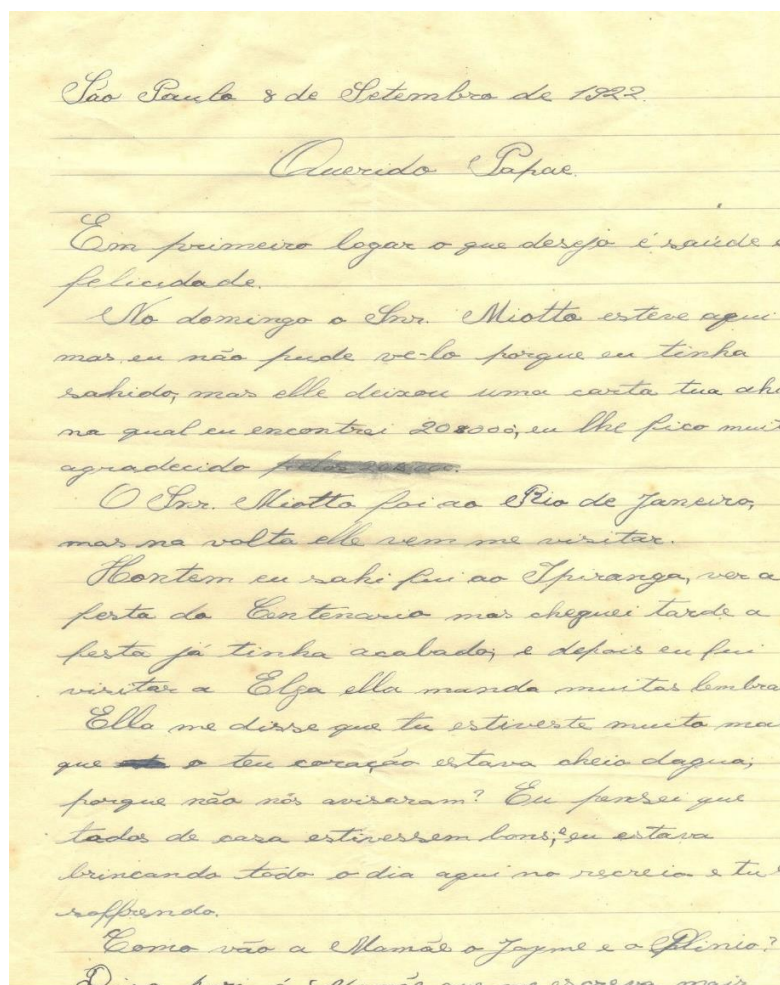 São Paulo 8 de Setembro de 1922.
Querido Papae.
Em primeiro logar o que desejo é saúde e
felicidade.
No domingo o Snr. Miotto esteve aqui
mas eu não pude ve-lo porque eu tinha
sahido, mas elle deixou uma carta tua ahi
na qual eu encontrei 20$000, eu lhe fico muit
agradecido
O Snr. Miotto foi ao Rio de Janeiro,
mas na volta elle vem me visitar.
Hontem eu sahi fui ao Ipiranga, ver a
festa do Centenario mas cheguei tarde a
festa já tinha acabado; e depois eu fui
visitar a Elza ella manda muitas lembra
Ella me disse que tu estiveste muito ma
que o teu coração estava cheio dagua;
porque não nós avisaram? Eu pensei que
todos de casa estivessem bons; e eu estava
brincando todo o dia aqui no recreio e tu
soffrendo.
Como vão a Mamãe o Jayme e o Plinio?
que me escreva mais